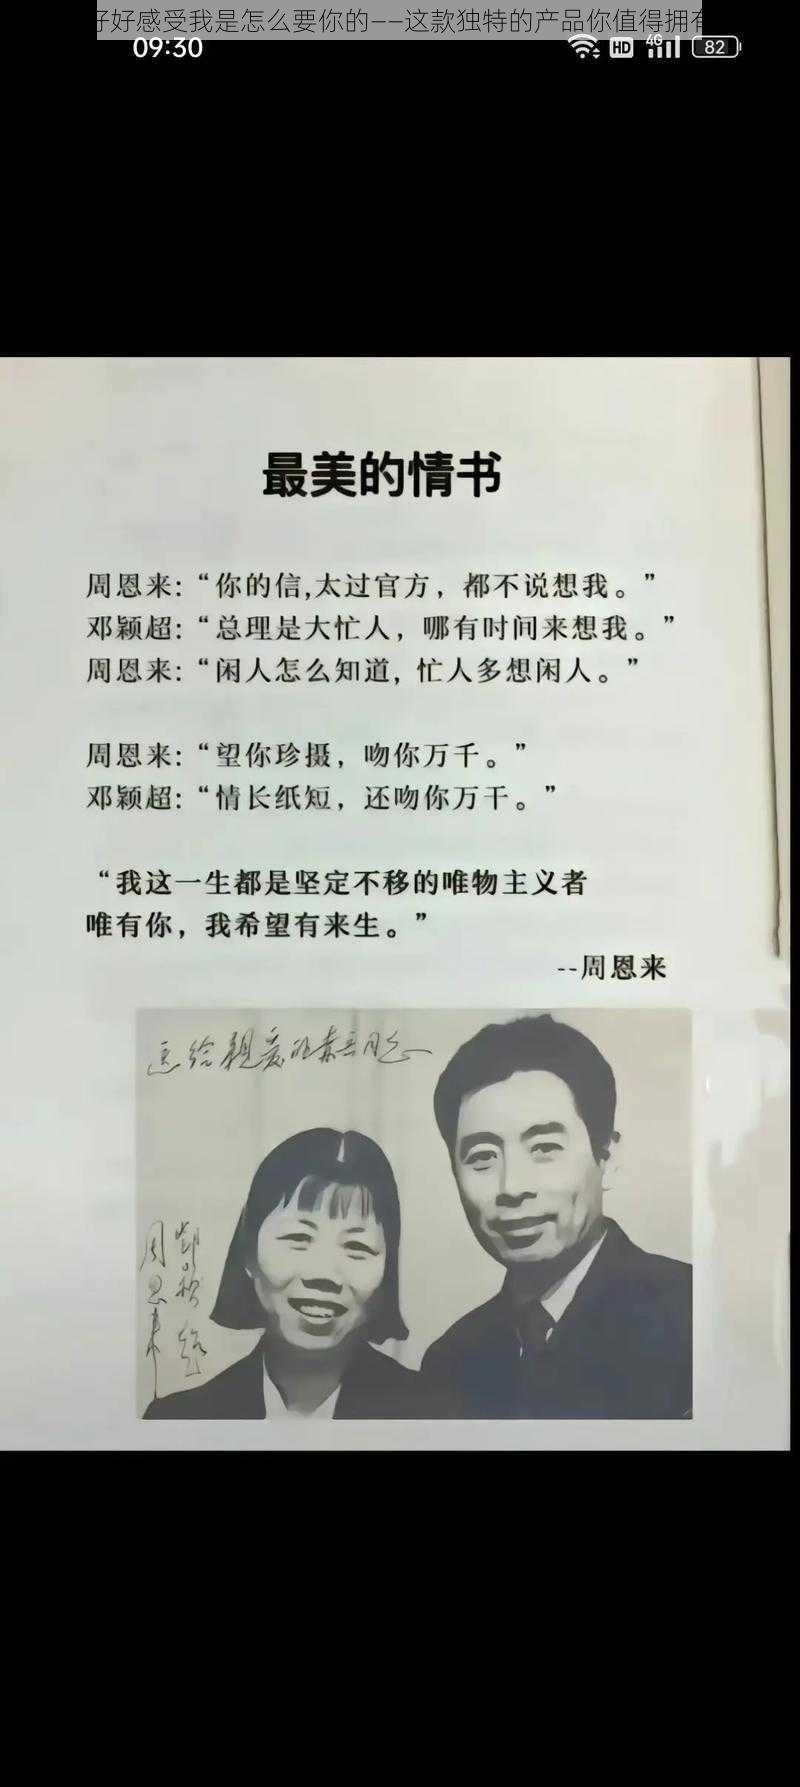 好好感受我是怎么要你的——这款独特的产品你值得拥有
09:30
HD 4G 82
最美的情书
周恩来:“你的信,太过官方，都不说想我。”
邓颖超:“总理是大忙人，哪有时间来想我。”
周恩来:“闲人怎么知道,忙人多想闲人。”
周恩来:“望你珍摄，吻你万千。”
邓颖超:“情长纸短，还吻你万千。”
“我这一生都是坚定不移的唯物主义者
唯有你，我希望有来生。”
--周恩来
送给親爱的
同志
周恩来
鄧穎超